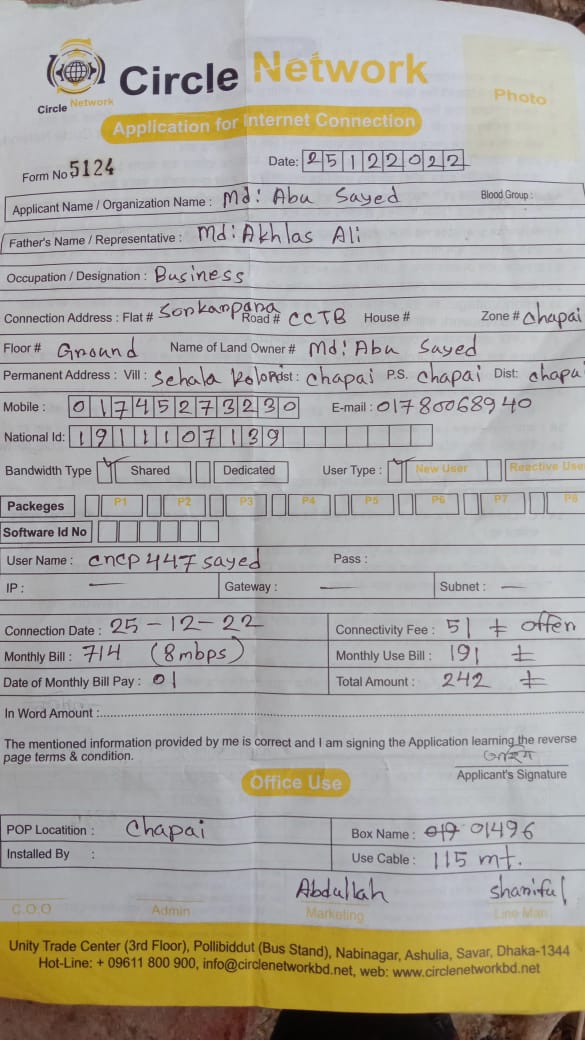 Circle Network
Circle Network
Photo
Application for Internet Connection
Form No 5124
Date: 25122022
Applicant Name / Organization Name : Md: Abu Sayed Blood Group :
Father's Name / Representative : Md: Akhlas Ali
Occupation / Designation : Business
Connection Address : Flat # Sonkanpana Road # CCTB House # Zone # Chapai
Floor# Ground Name of Land Owner # Md: Abu Sayed
Permanent Address : Vill : Sehala Post: Chapai P.S. Chapai Dist: Chapai
Mobile : 01745273230 E-mail : 01780068940
National Id: 1911107139
Bandwidth Type Shared Dedicated User Type : New User Reactive User
Packeges P1 P2 P3 P4 P5 P6 P7 P8
Software Id No
User Name : cncp447sayed Pass :
IP : — Gateway : — Subnet : —
Connection Date : 25-12-22 Connectivity Fee : 51 ± offer
Monthly Bill : 714 (8mbps) Monthly Use Bill : 191 ±
Date of Monthly Bill Pay : 01 Total Amount : 242 ±
In Word Amount :
The mentioned information provided by me is correct and I am signing the Application learning the reverse
page terms & condition.
Applicant's Signature
Office Use
POP Locatition : Chapai Box Name : 019 01496
Installed By : Use Cable : 115 mt.
Abdullah Shariful
C.O.O Admin Marketing Line Man
Unity Trade Center (3rd Floor), Pollibiddut (Bus Stand), Nabinagar, Ashulia, Savar, Dhaka-1344
Hot-Line: + 09611 800 900, info@circlenetworkbd.net, web: www.circlenetworkbd.net